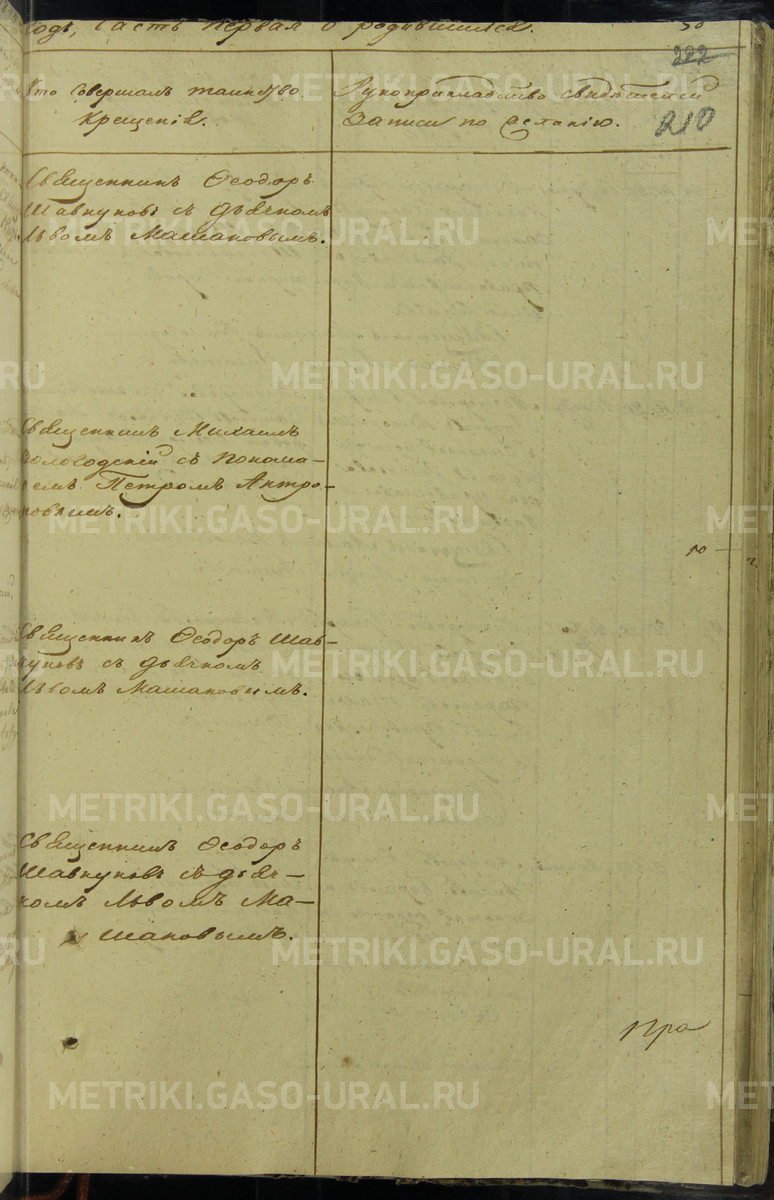 Годъ, Часть первая о родившихся.
50
222
210
Кто совершалъ таинство
Крещенія.
Рукоприкладство свидѣтелей
записи по желанію.
Священникъ Ѳеодоръ
Шавкуновъ съ дьячкомъ
Львомъ Машановымъ.
Священникъ Михаилъ
Вологодскій съ понома-
ремъ Петромъ Антро-
повымъ.
Священникъ Ѳеодоръ Шав-
куновъ съ дьячкомъ
Львомъ Машановымъ.
Священникъ Ѳеодоръ
Шавкуновъ съ дьяч-
комъ Львомъ Ма-
шановымъ.
METRIKI.GASO-URAL.RU